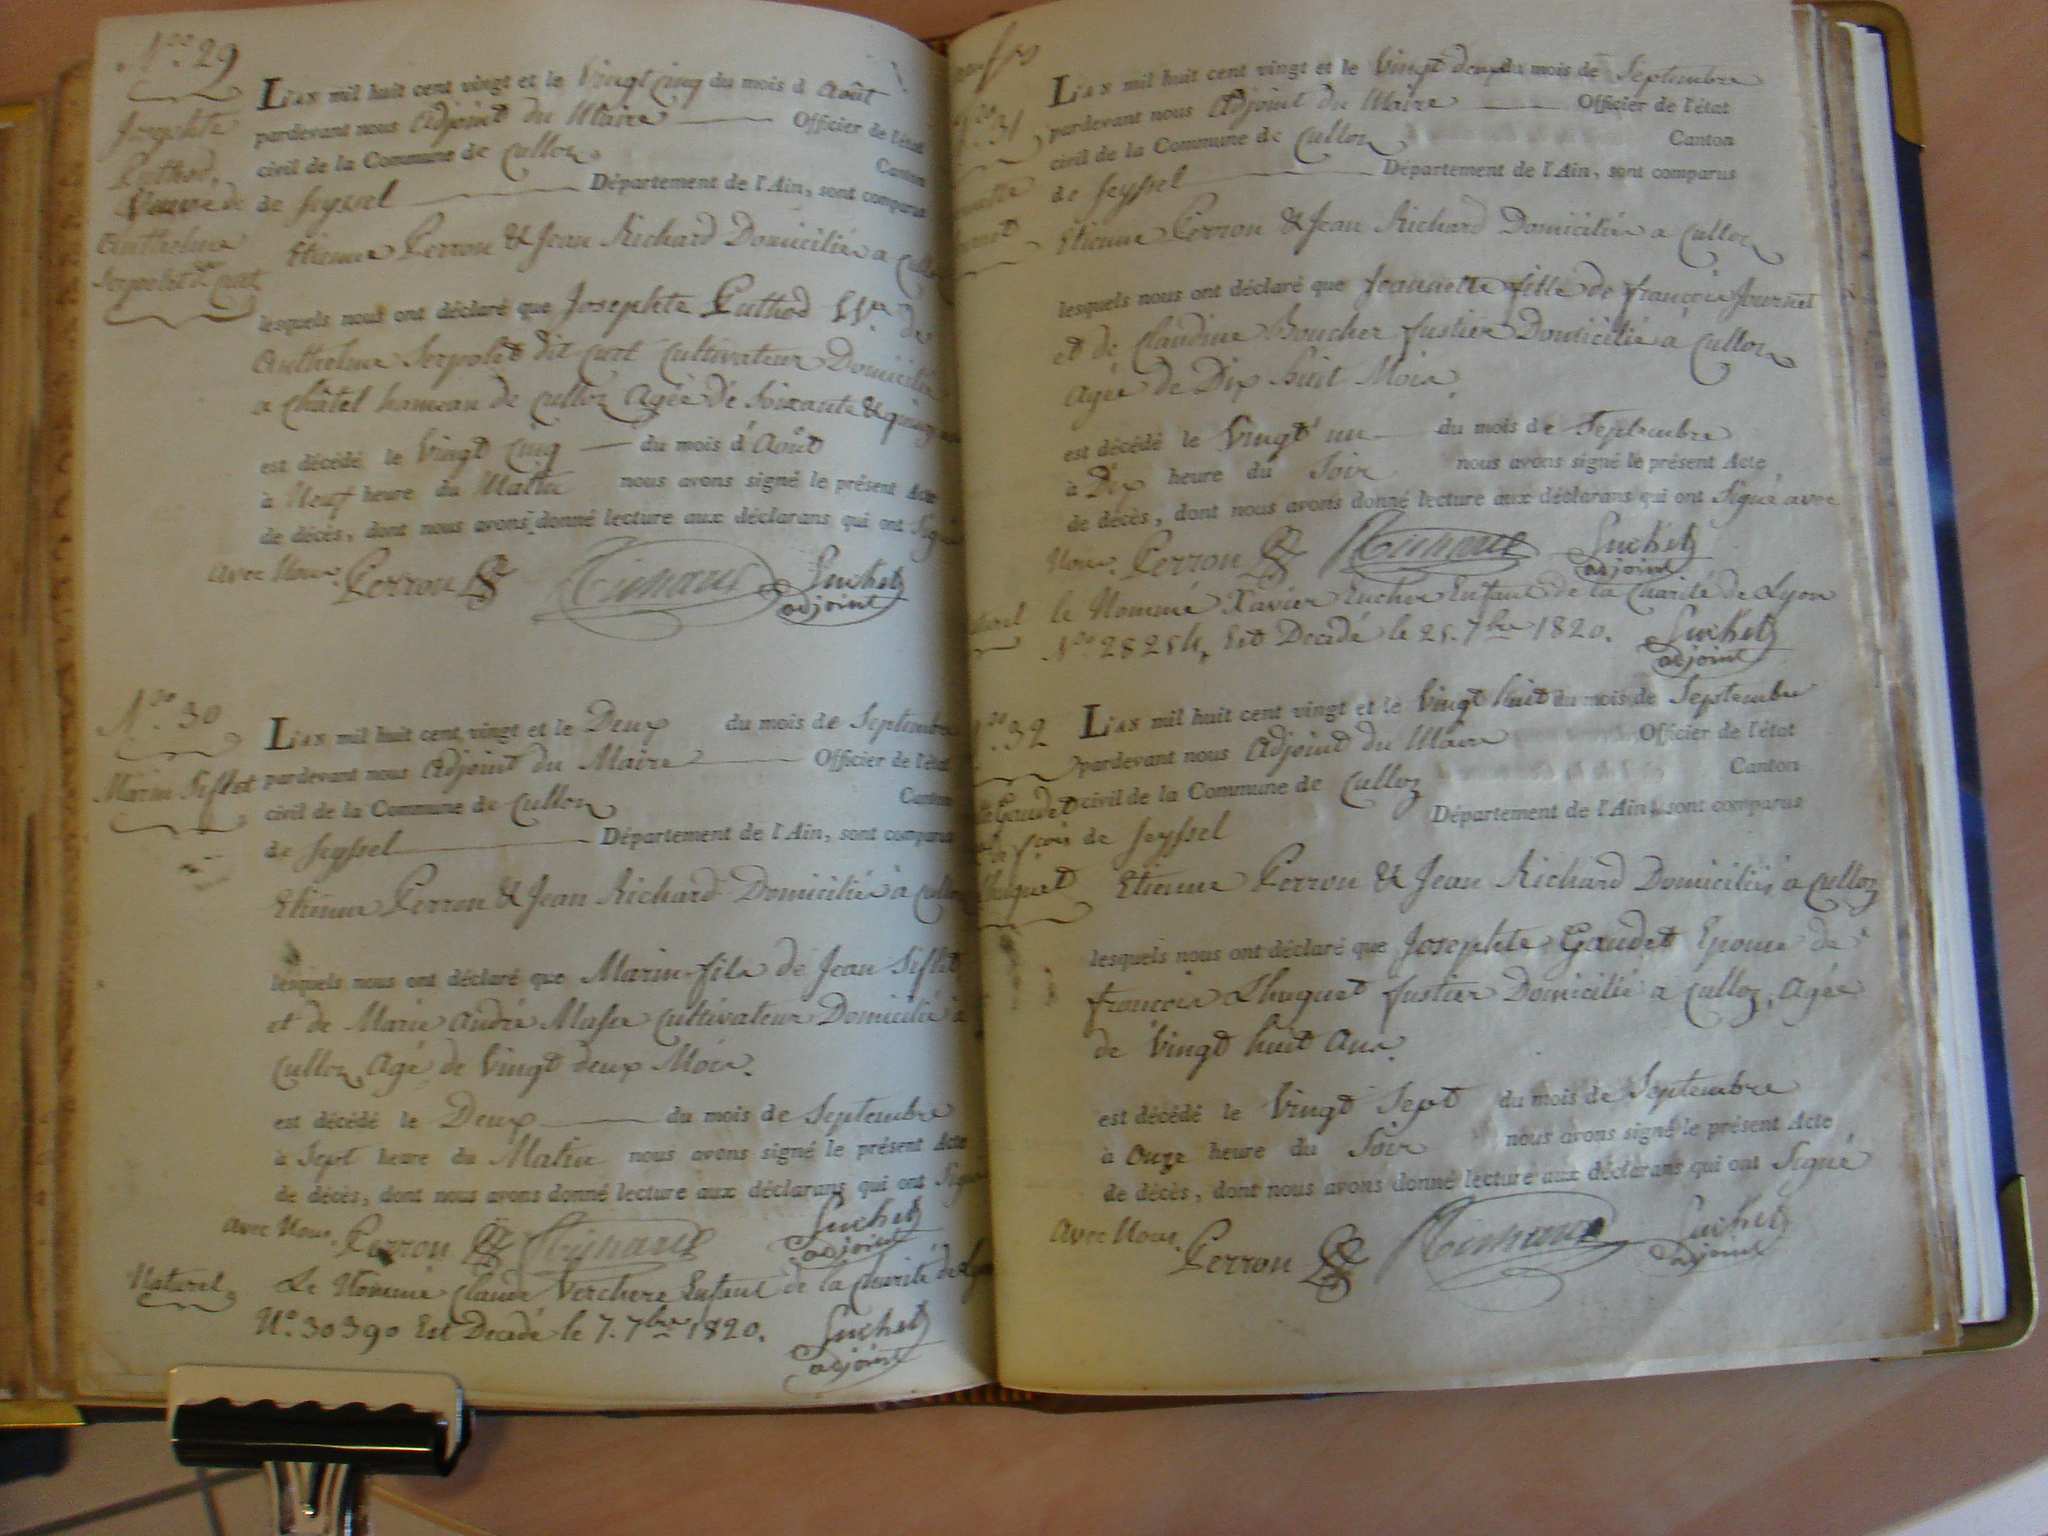 N.ro 29
Josephte
Puthod,
Veuve de
Anthelme
Serpolet dit Curt
L'an mil huit cent vingt et le Vingt Cinq du mois d Août
pardevant nous Adjoint du Maire Officier de l'état
civil de la Commune de Culloz Canton
de Seyssel Département de l'Ain, sont comparus
Etienne Perron & Jean Richard Domiciliés a
lesquels nous ont déclaré que Josephte Puthod V.ve de
Anthelme Serpolet dit Curt Cultivateur Domicilié
a Châtel hameau de Culloz Agée de Soixante &
est décédé le Vingt Cinq du mois d'Août
à Neuf heure du Matin nous avons signé le présent Acte
de décès, dont nous avons donné lecture aux déclarans qui ont Signé
avec Nous. Perron Richard Suchet
adjoint
N.ro 30
Marin Siflet
L'an mil huit cent vingt et le Deux du mois de Septembre
pardevant nous Adjoint du Maire Officier de l'état
civil de la Commune de Culloz Canton
de Seyssel Département de l'Ain, sont comparus
Etienne Perron & Jean Richard Domiciliés à Culloz
lesquels nous ont déclaré que Marin fils de Jean Siflet
et de Marie André Masse Cultivateur Domicilié à
Culloz, Agé de Vingt deux Mois.
est décédé le Deux du mois de Septembre
à Sept heure du Matin nous avons signé le présent Acte
de décès, dont nous avons donné lecture aux déclarans qui ont Signé
avec Nous. Perron Richard Suchet
adjoint
Naturel. Le Nommé Claude Verchere Enfant de la Charité de Lyon
N.o 30390 Est Decedé le 7. 7bre 1820. Suchet
adjoint
31
L'an mil huit cent vingt et le Vingt deux du mois de Septembre
pardevant nous Adjoint du Maire Officier de l'état
civil de la Commune de Culloz Canton
de Seyssel Département de l'Ain, sont comparus
Etienne Perron & Jean Richard Domiciliés a Culloz
lesquels nous ont déclaré que Jeannette fille de françois Journet
et de Claudine Boucher fustier Domicilié à Culloz
Agée de Dix huit Mois
est décédé le Vingt un du mois de Septembre
à Dix heure du Soir nous avons signé le présent Acte
de décès, dont nous avons donné lecture aux déclarans qui ont Signé avec
Nous. Perron Richard Suchet
adjoint
le Nommé Xavier Enfant de la Charité de Lyon
Est Decedé le 25. 7bre 1820. Suchet
adjoint
32
Gaudet
L'an mil huit cent vingt et le Vingt huit du mois de Septembre
pardevant nous Adjoint du Maire Officier de l'état
civil de la Commune de Culloz Canton
de Seyssel Département de l'Ain, sont comparus
Etienne Perron & Jean Richard Domiciliés a Culloz
lesquels nous ont déclaré que Josephte Gaudet Epouse de
françois Lhuguet fustier Domicilié a Culloz, Agée
de Vingt huit Ans.
est décédé le Vingt Sept du mois de Septembre
à Onze heure du Soir nous avons signé le présent Acte
de décès, dont nous avons donné lecture aux déclarans qui ont Signé
avec Nous. Perron Richard Suchet
adjoint